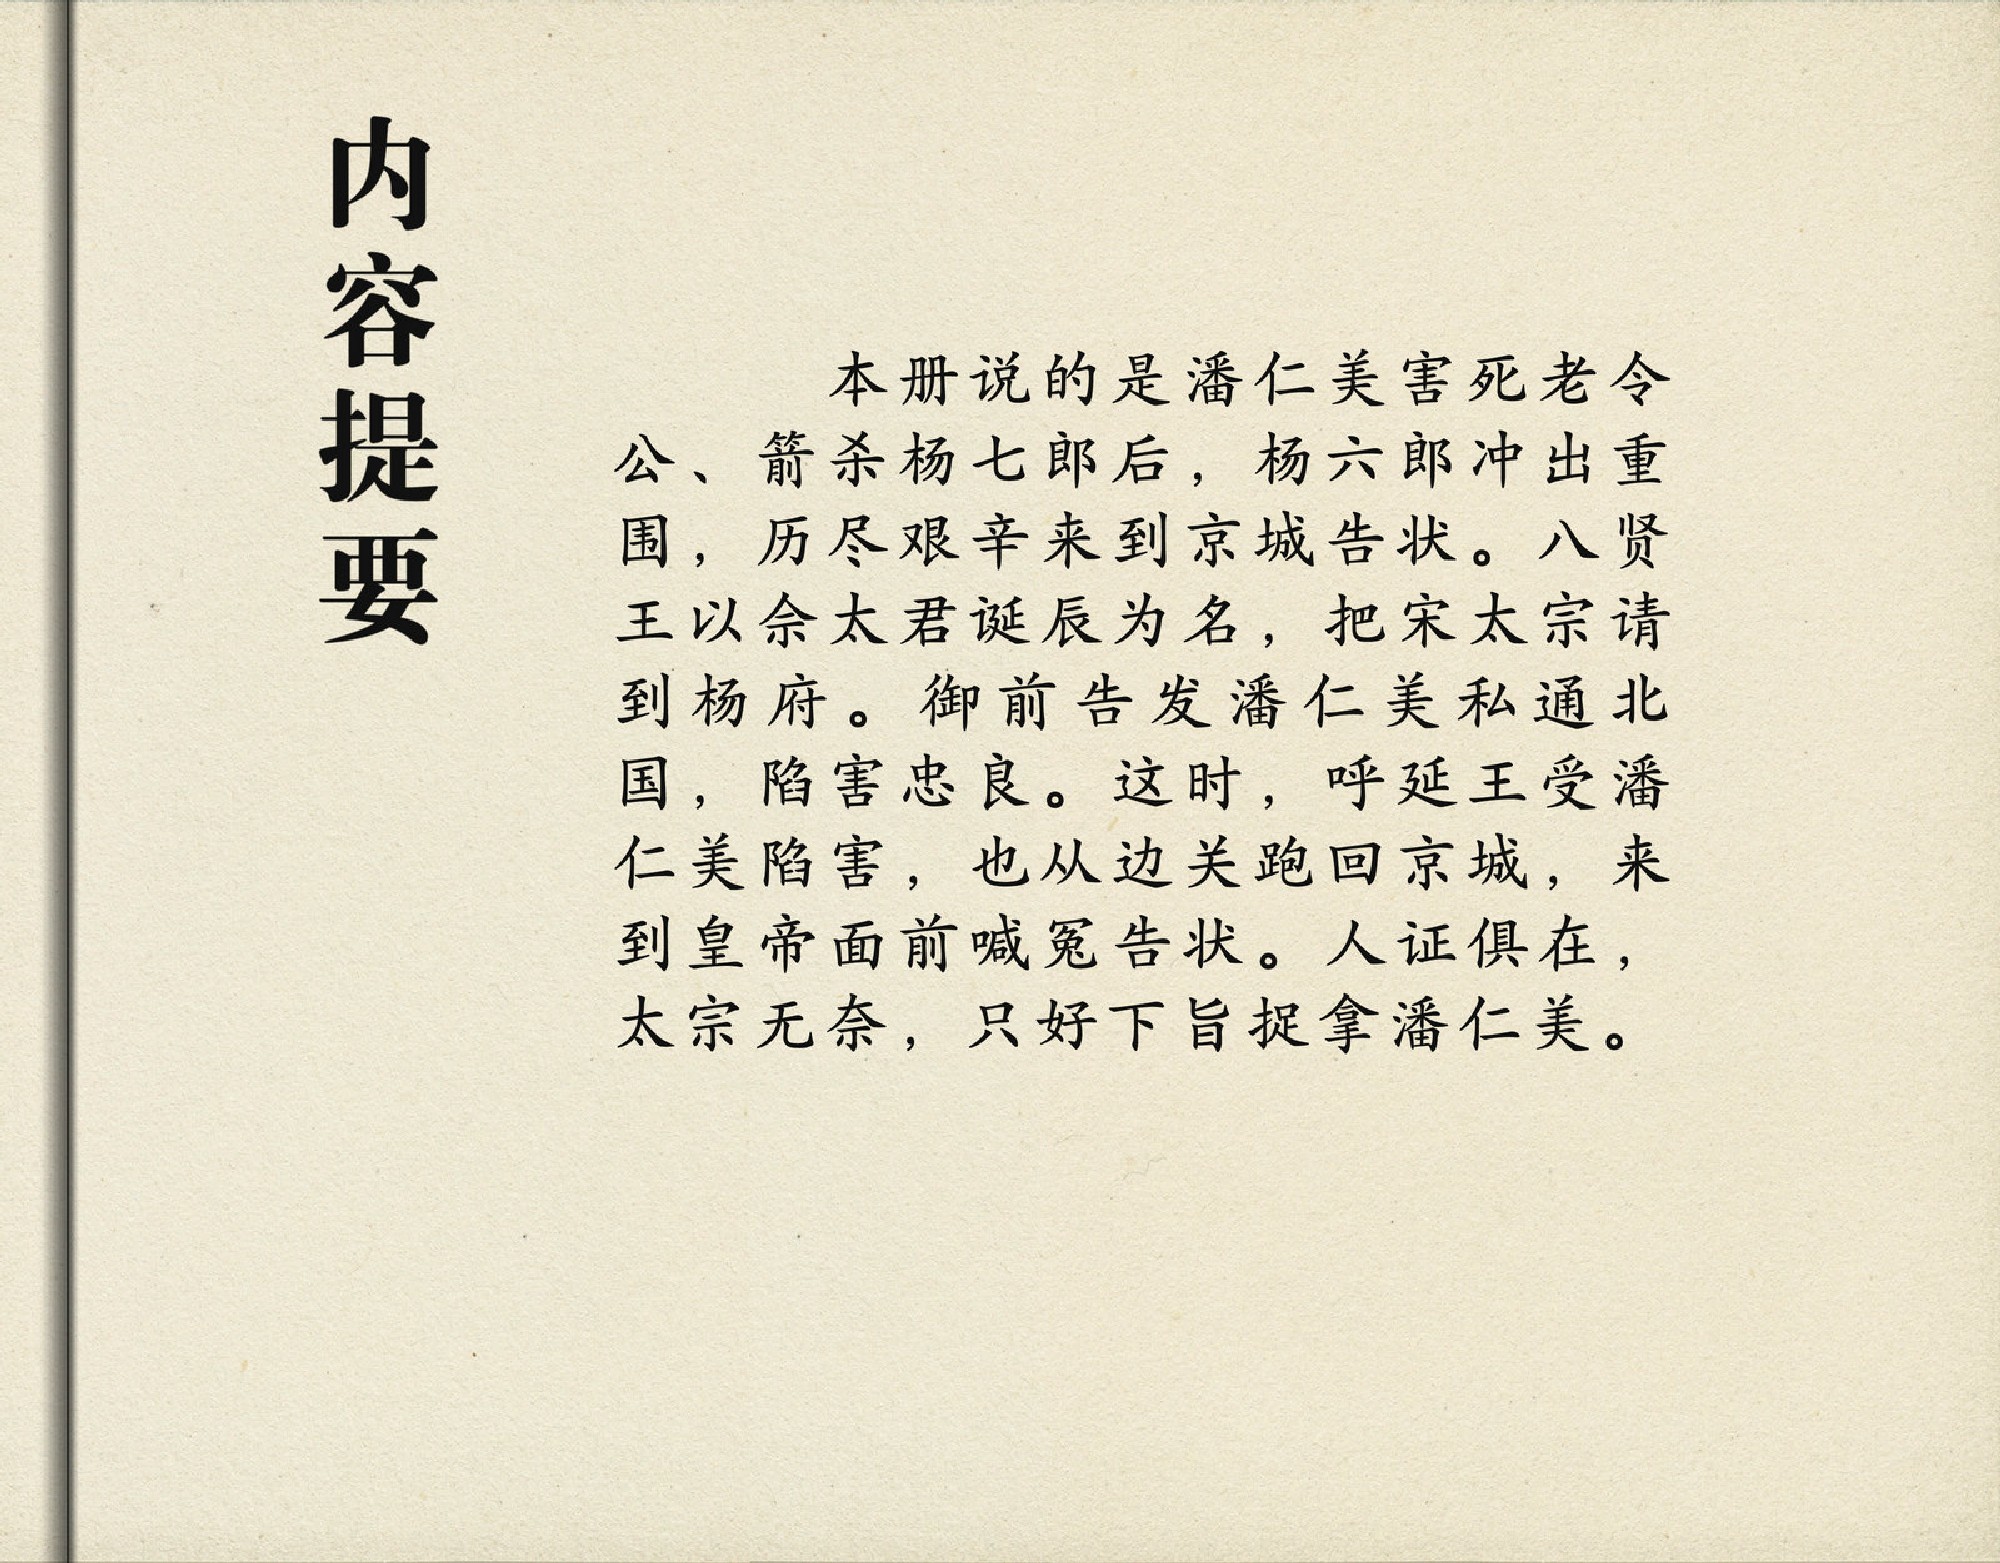 内容提要
本册说的是潘仁美害死老令
公、箭杀杨七郎后，杨六郎冲出重
围，历尽艰辛来到京城告状。八贤
王以佘太君诞辰为名，把宋太宗请
到杨府。御前告发潘仁美私通北
国，陷害忠良。这时，呼延王受潘
仁美陷害，也从边关跑回京城，来
到皇帝面前喊冤告状。人证俱在，
太宗无奈，只好下旨捉拿潘仁美。